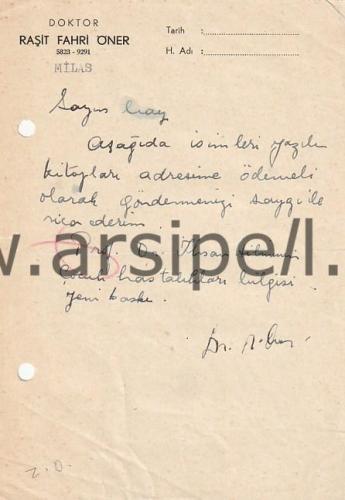 DOKTOR
RAŞİT FAHRİ ÖNER
5823 - 9291
MİLAS
Tarih :
H. Adı :
Sayın
Aşağıda isimleri yazılı
kitapları adresime ödemeli
olarak göndermenizi saygı ile
rica ederim.
Prof. Dr. İhsan
Çocuk hastalıkları bilgisi
Yeni baskı.
Dr.
www.arsipel.